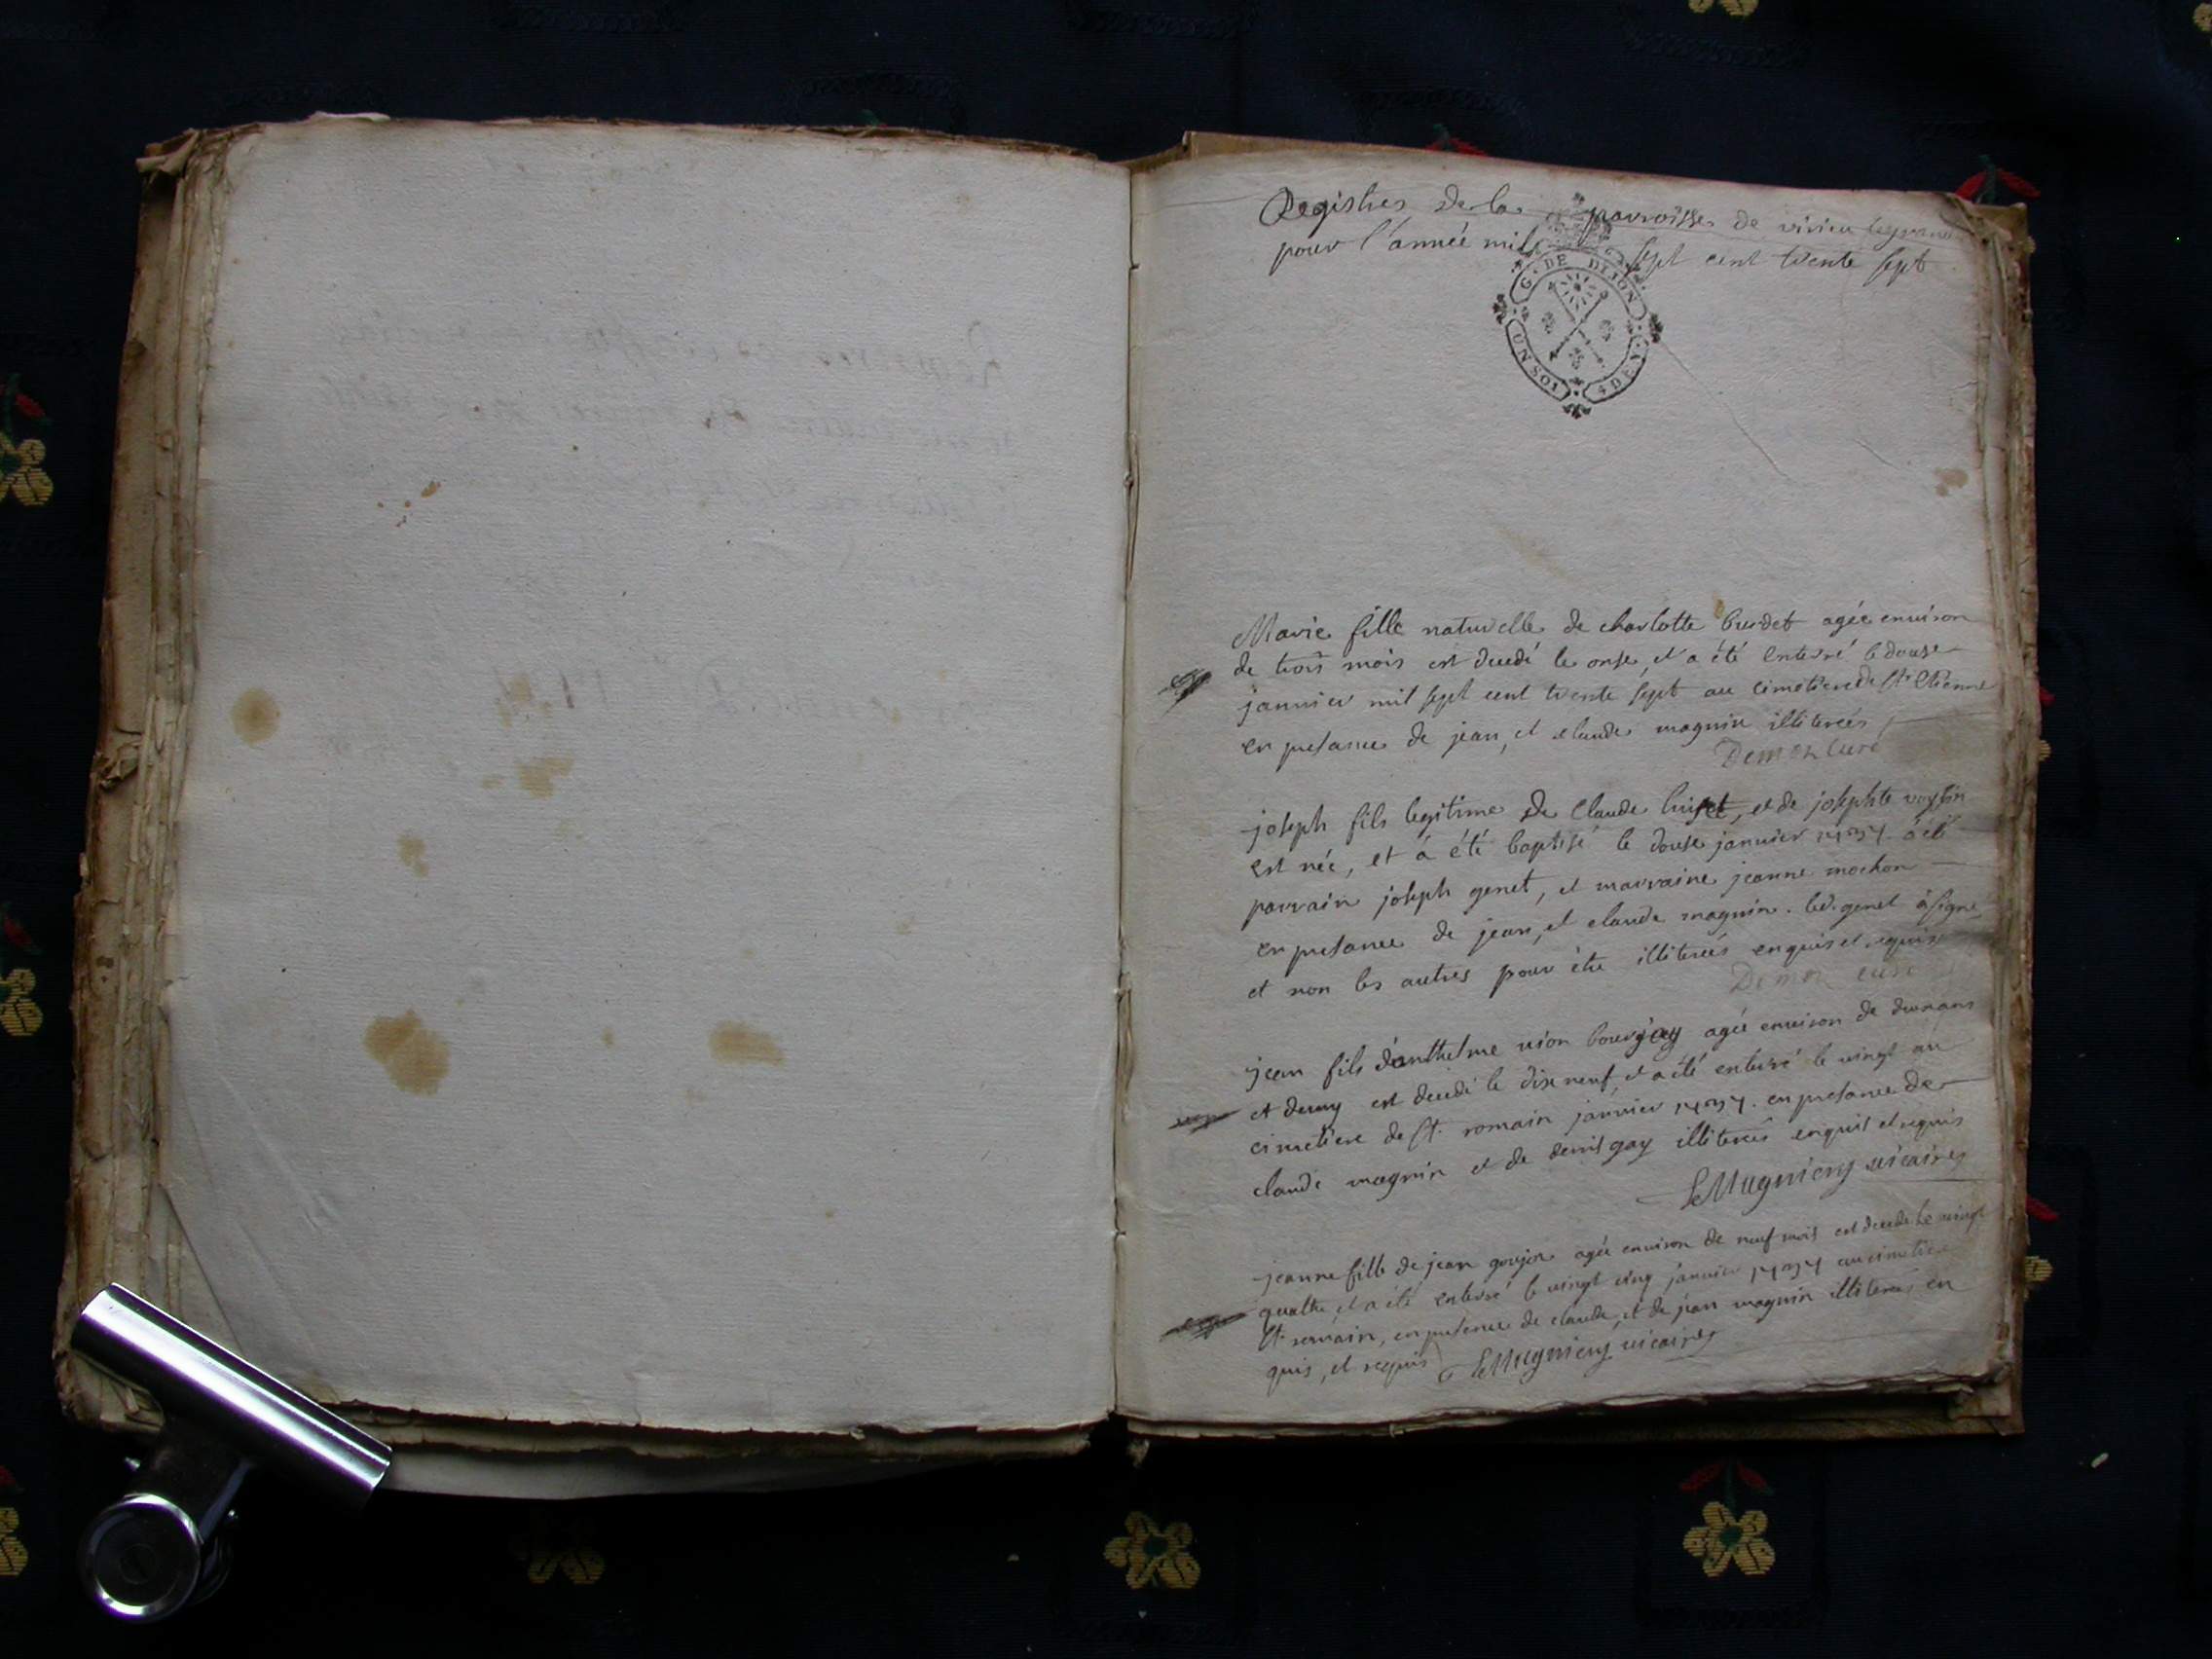 Registres de la parroisse de virieu legrand
pour l'année mil sept cent trente sept
G. DE DIJON
UN SOL 4 DEN.
Marie fille naturelle de charlotte burdet agée environ
de trois mois est decedé le onse, et a été enterré le douse
janvier mil sept cent trente sept au cimetiere de st. Etienne
en presance de jean, et claude magnin illiterés
Demon curé
joseph fils legitime de Claude huiset, et de josephte voysin
est née, et à été baptisé le douse janvier 1737 a été
parrain joseph genet, et marraine jeanne mochon
en presance de jean, et claude magnin. led. genet à signé
et non les autres pour être illiterés enquis et requis
Demon curé
jean fils d'anthelme vion bourjay agée environ de deux ans
et demy est decedé le dix neuf, et a été enterré le vingt au
cimetiere de st. romain janvier 1737. en presance de
claude magnin et de denis gay illiterés enquis et requis
LeMugnierÿ vicaire
jeanne fille de jean goujon agée environ de neuf mois est decedé le vingt
quattre, et a été enterré le vingt cinq janvier 1737 au cimetiere
st. romain, en presence de claude, et de jean magnin illiterés en
quis, et requis LeMugnierÿ vicaire